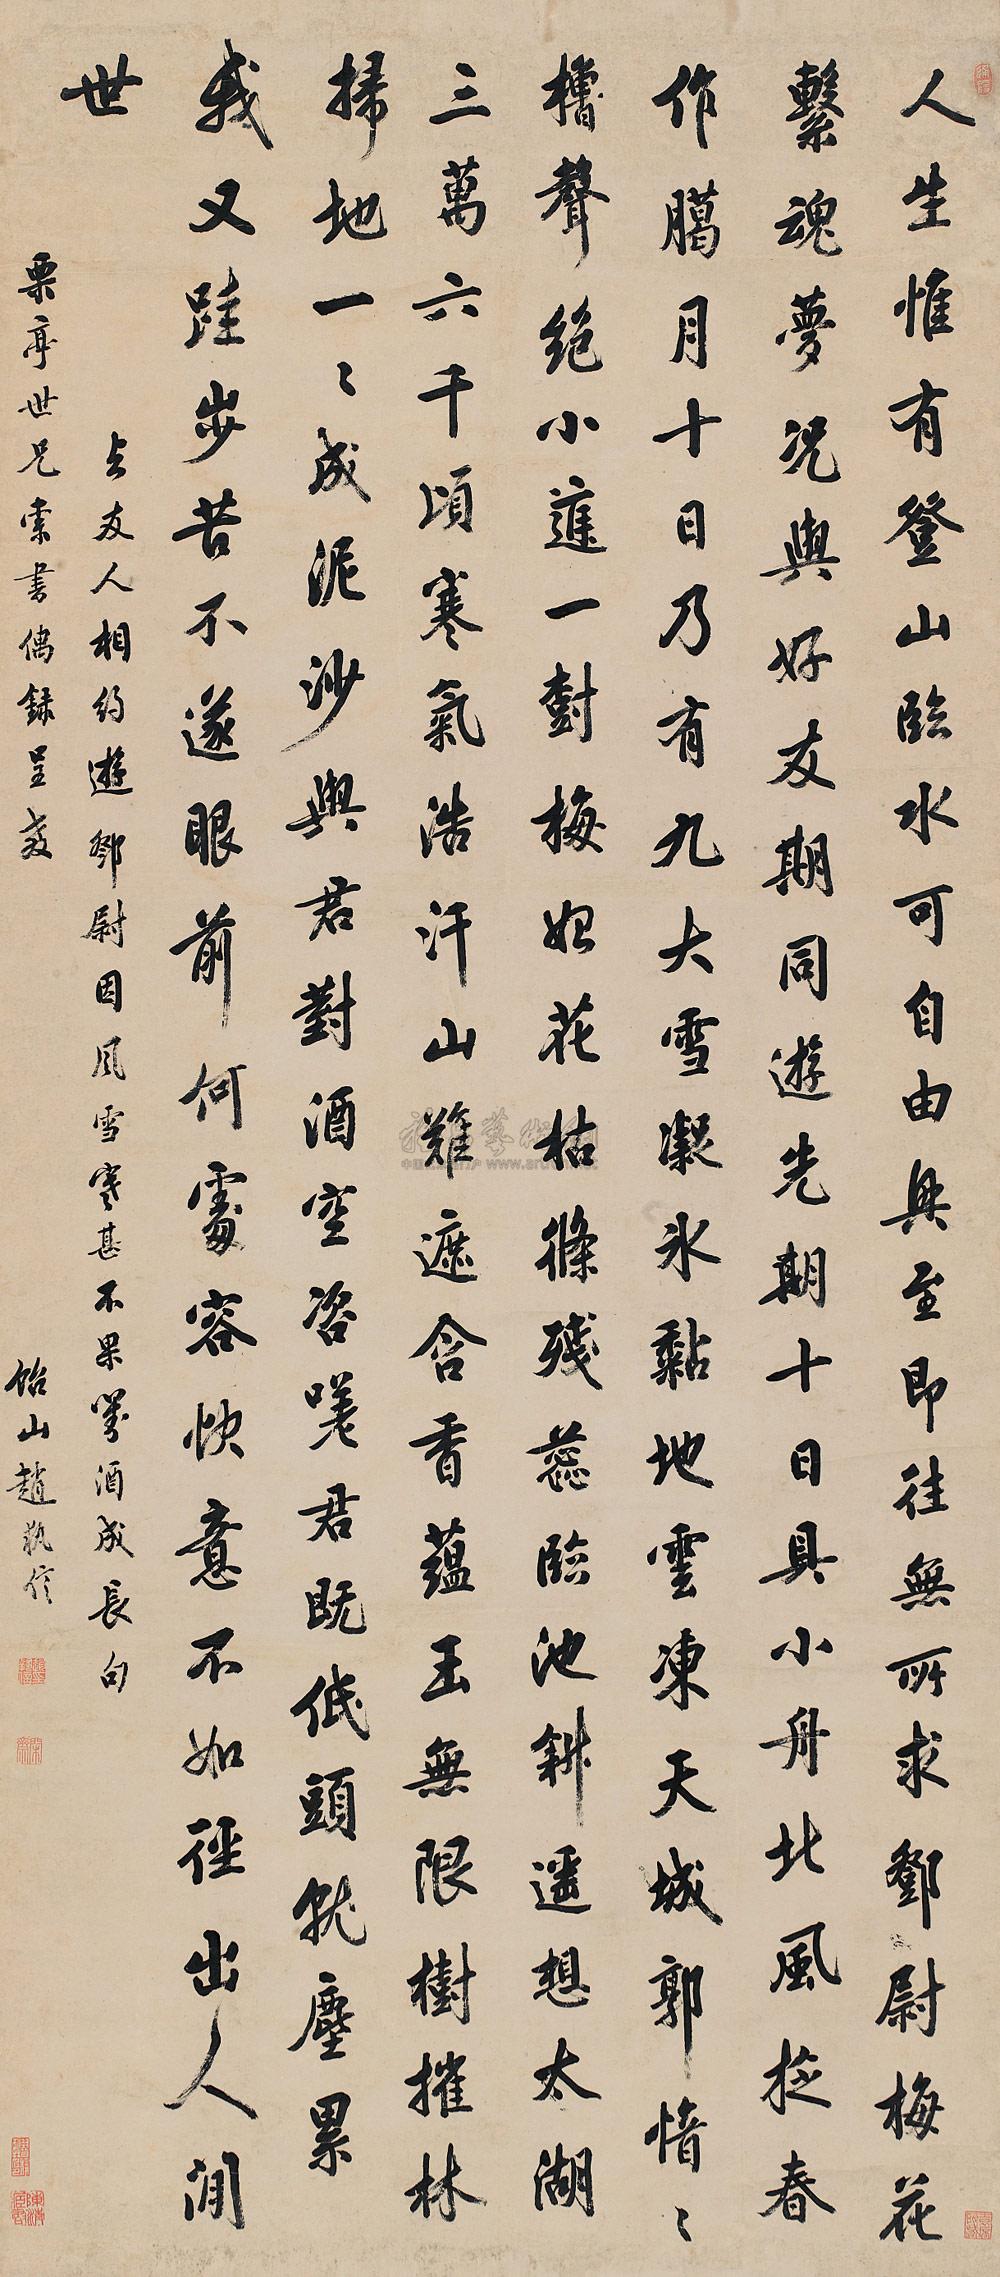 人生惟有登山臨水可自由興至即往無所求鄧尉梅花
繫魂夢況與好友期同遊先期十日具小舟北風挖春
作臈月十日乃有九大雪凝氷黏地雲凍天城郭愔〻
櫓聲絕小進一對梅妲花枯條殘蕊臨池斜遥想太湖
三萬六千頃寒氣浩汗山難遮含香蘊玉無限樹摧林
掃地一〻成泥沙與君對酒空咨嗟君既低頭就塵累
我又跬步苦不遂眼前何處容快意不如徑出人閒
世
与友人相約遊鄧尉因風雪寒甚不果置酒成長句
栗亭世兄索書偶錄呈教
飴山趙執信